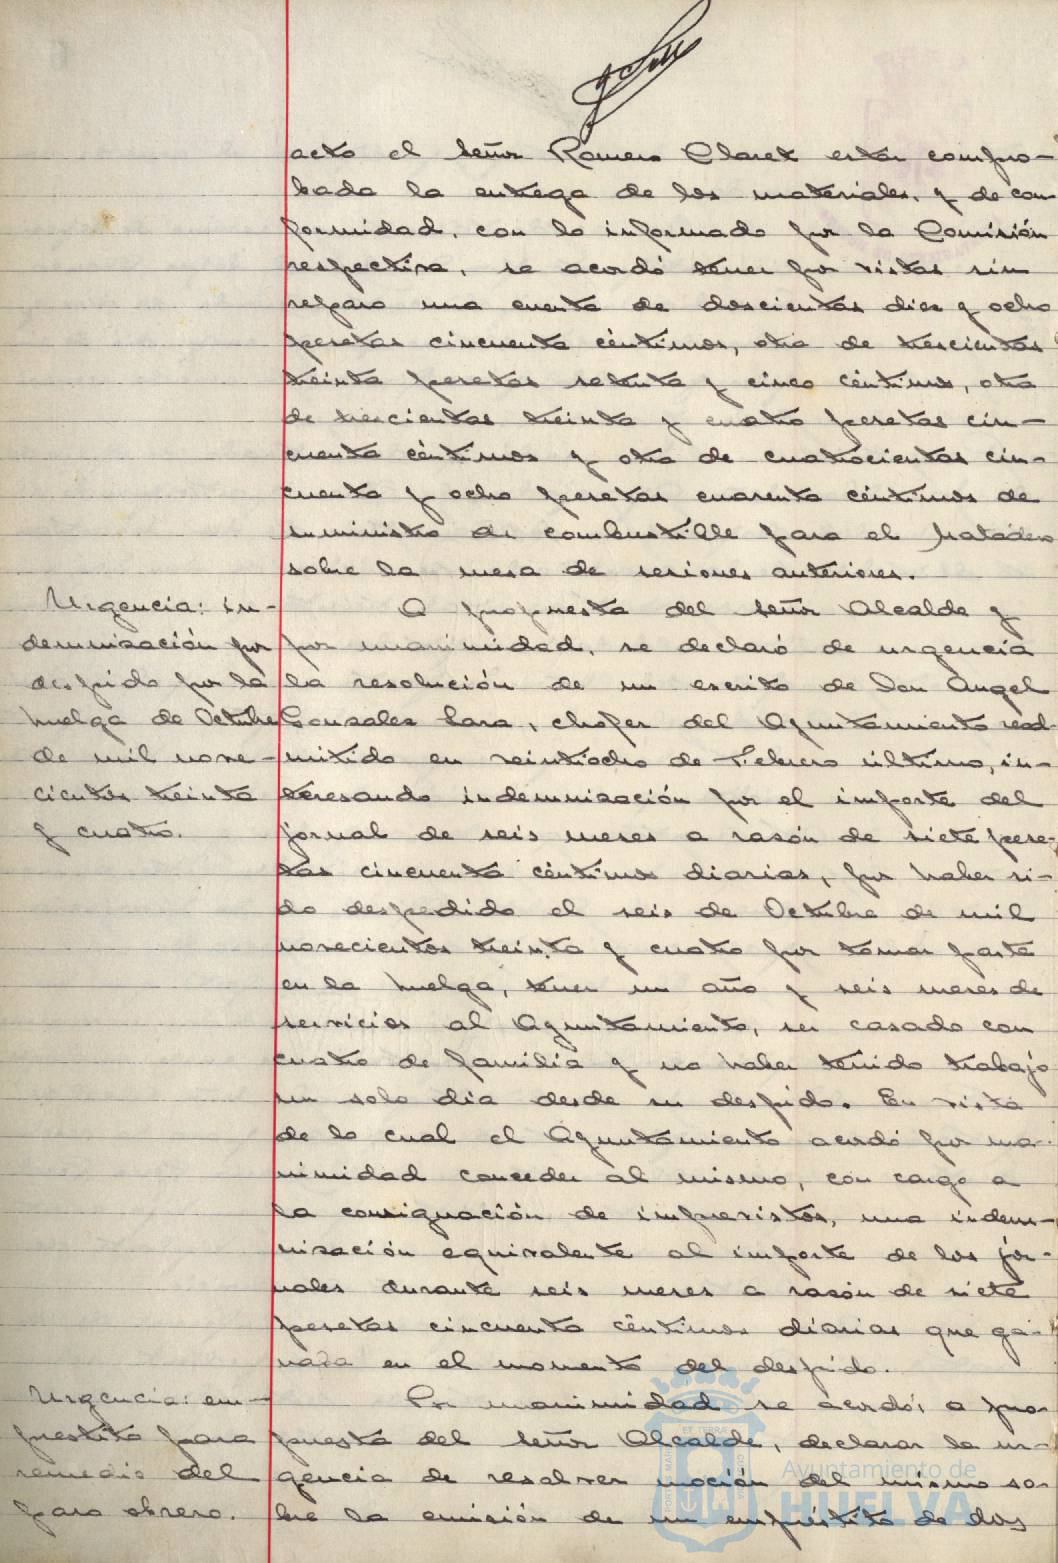 acto el señor Romero Claret estar compro-
bada la entrega de los materiales, y de con
formidad, con lo informado por la Comisión
respectiva, se acordó tener por vistas sin
reparo una cuenta de doscientas diez y ocho
pesetas cincuenta céntimos, otra de trescientas
treinta pesetas setenta y cinco céntimos, otra
de trescientas treinta y cuatro pesetas cin-
cuenta céntimos y otra de cuatrocientas cin-
cuenta y ocho pesetas cuarenta céntimos de
suministro de combustible para el matadero
sobre la mesa de sesiones anteriores.
Urgencia: in-
demnización por
despido por la
huelga de Octubre
de mil nove-
cientos treinta
y cuatro.
A propuesta del señor Alcalde y
por unanimidad, se declaró de urgencia
la resolución de un escrito de Don Angel
Gonzales Lara, chofer del Ayuntamiento read-
mitido en veintiocho de Febrero último, in-
teresando indemnización por el importe del
jornal de seis meses a razón de siete pese-
tas cincuenta céntimos diarias, por haber si-
do despedido el seis de Octubre de mil
novecientos treinta y cuatro por tomar parte
en la huelga, tener un año y seis meses de
servicios al Ayuntamiento, ser casado con
cuatro de familia y no haber tenido trabajo
un solo dia desde su despido. En vista
de lo cual el Ayuntamiento acordó por una-
nimidad conceder al mismo, con cargo a
la consignación de imprevistos, una indem-
nización equivalente al importe de los jor-
nales durante seis meses a razón de siete
pesetas cincuenta céntimos diarias que ga-
naba en el momento del despido.
Urgencia: em-
prestito para
remedio del
paro obrero.
Por unanimidad se acordó, a pro-
puesta del señor Alcalde, declarar la ur-
gencia de resolver moción del mismo so-
bre la emisión de un empréstito de dos
Ayuntamiento de
HUELVA